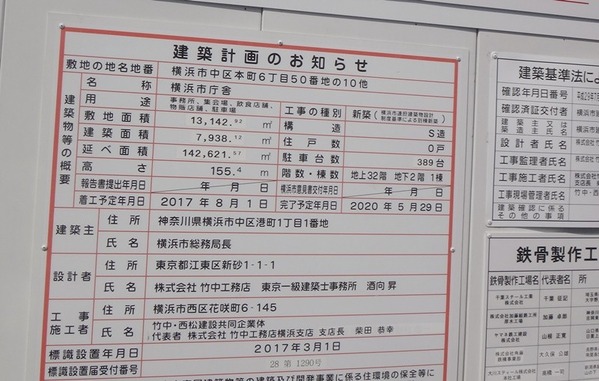 建築計画のお知らせ
敷地の地名地番 横浜市中区本町6丁目50番地の10他
建築物等の概要
名称 横浜市庁舎
用途 事務所、集会場、飲食店舗、物販店舗、駐車場
工事の種別 新築
敷地面積 13,142.92 ㎡ 構造 S造
建築面積 7,938.12 ㎡ 住戸数 0戸
延べ面積 142,621.57 ㎡ 駐車台数 389台
高さ 155.4 m 階数・棟数 地上32階 地下2階 1棟
報告書提出年月日 年 月 日 横浜市意見書交付年月日 年 月 日
着工予定年月日 2017年8月1日 完了予定年月日 2020年5月29日
建築主 住所 神奈川県横浜市中区港町1丁目1番地
氏名 横浜市総務局長
設計者 住所 東京都江東区新砂1-1-1
氏名 株式会社 竹中工務店 東京一級建築士事務所 酒向 昇
工事施工者 住所 横浜市西区花咲町6-145
氏名 竹中・西松建設共同企業体
代表者 株式会社 竹中工務店横浜支店 支店長 柴田 恭幸
標識設置年月日 2017年3月1日
標識設置届受付番号 28 第 1290号
建築基準法によ
確認年月日番号 平成29年7月
確認済証交付者
建築主又は築造主氏名
設計者氏名 株式会社
工事監理者氏名
工事施工者氏名
工事現場管理者氏名 竹中・西
建築確認に係るその他の事項
鉄骨製作工
鉄骨製作工場名 代表者名 所